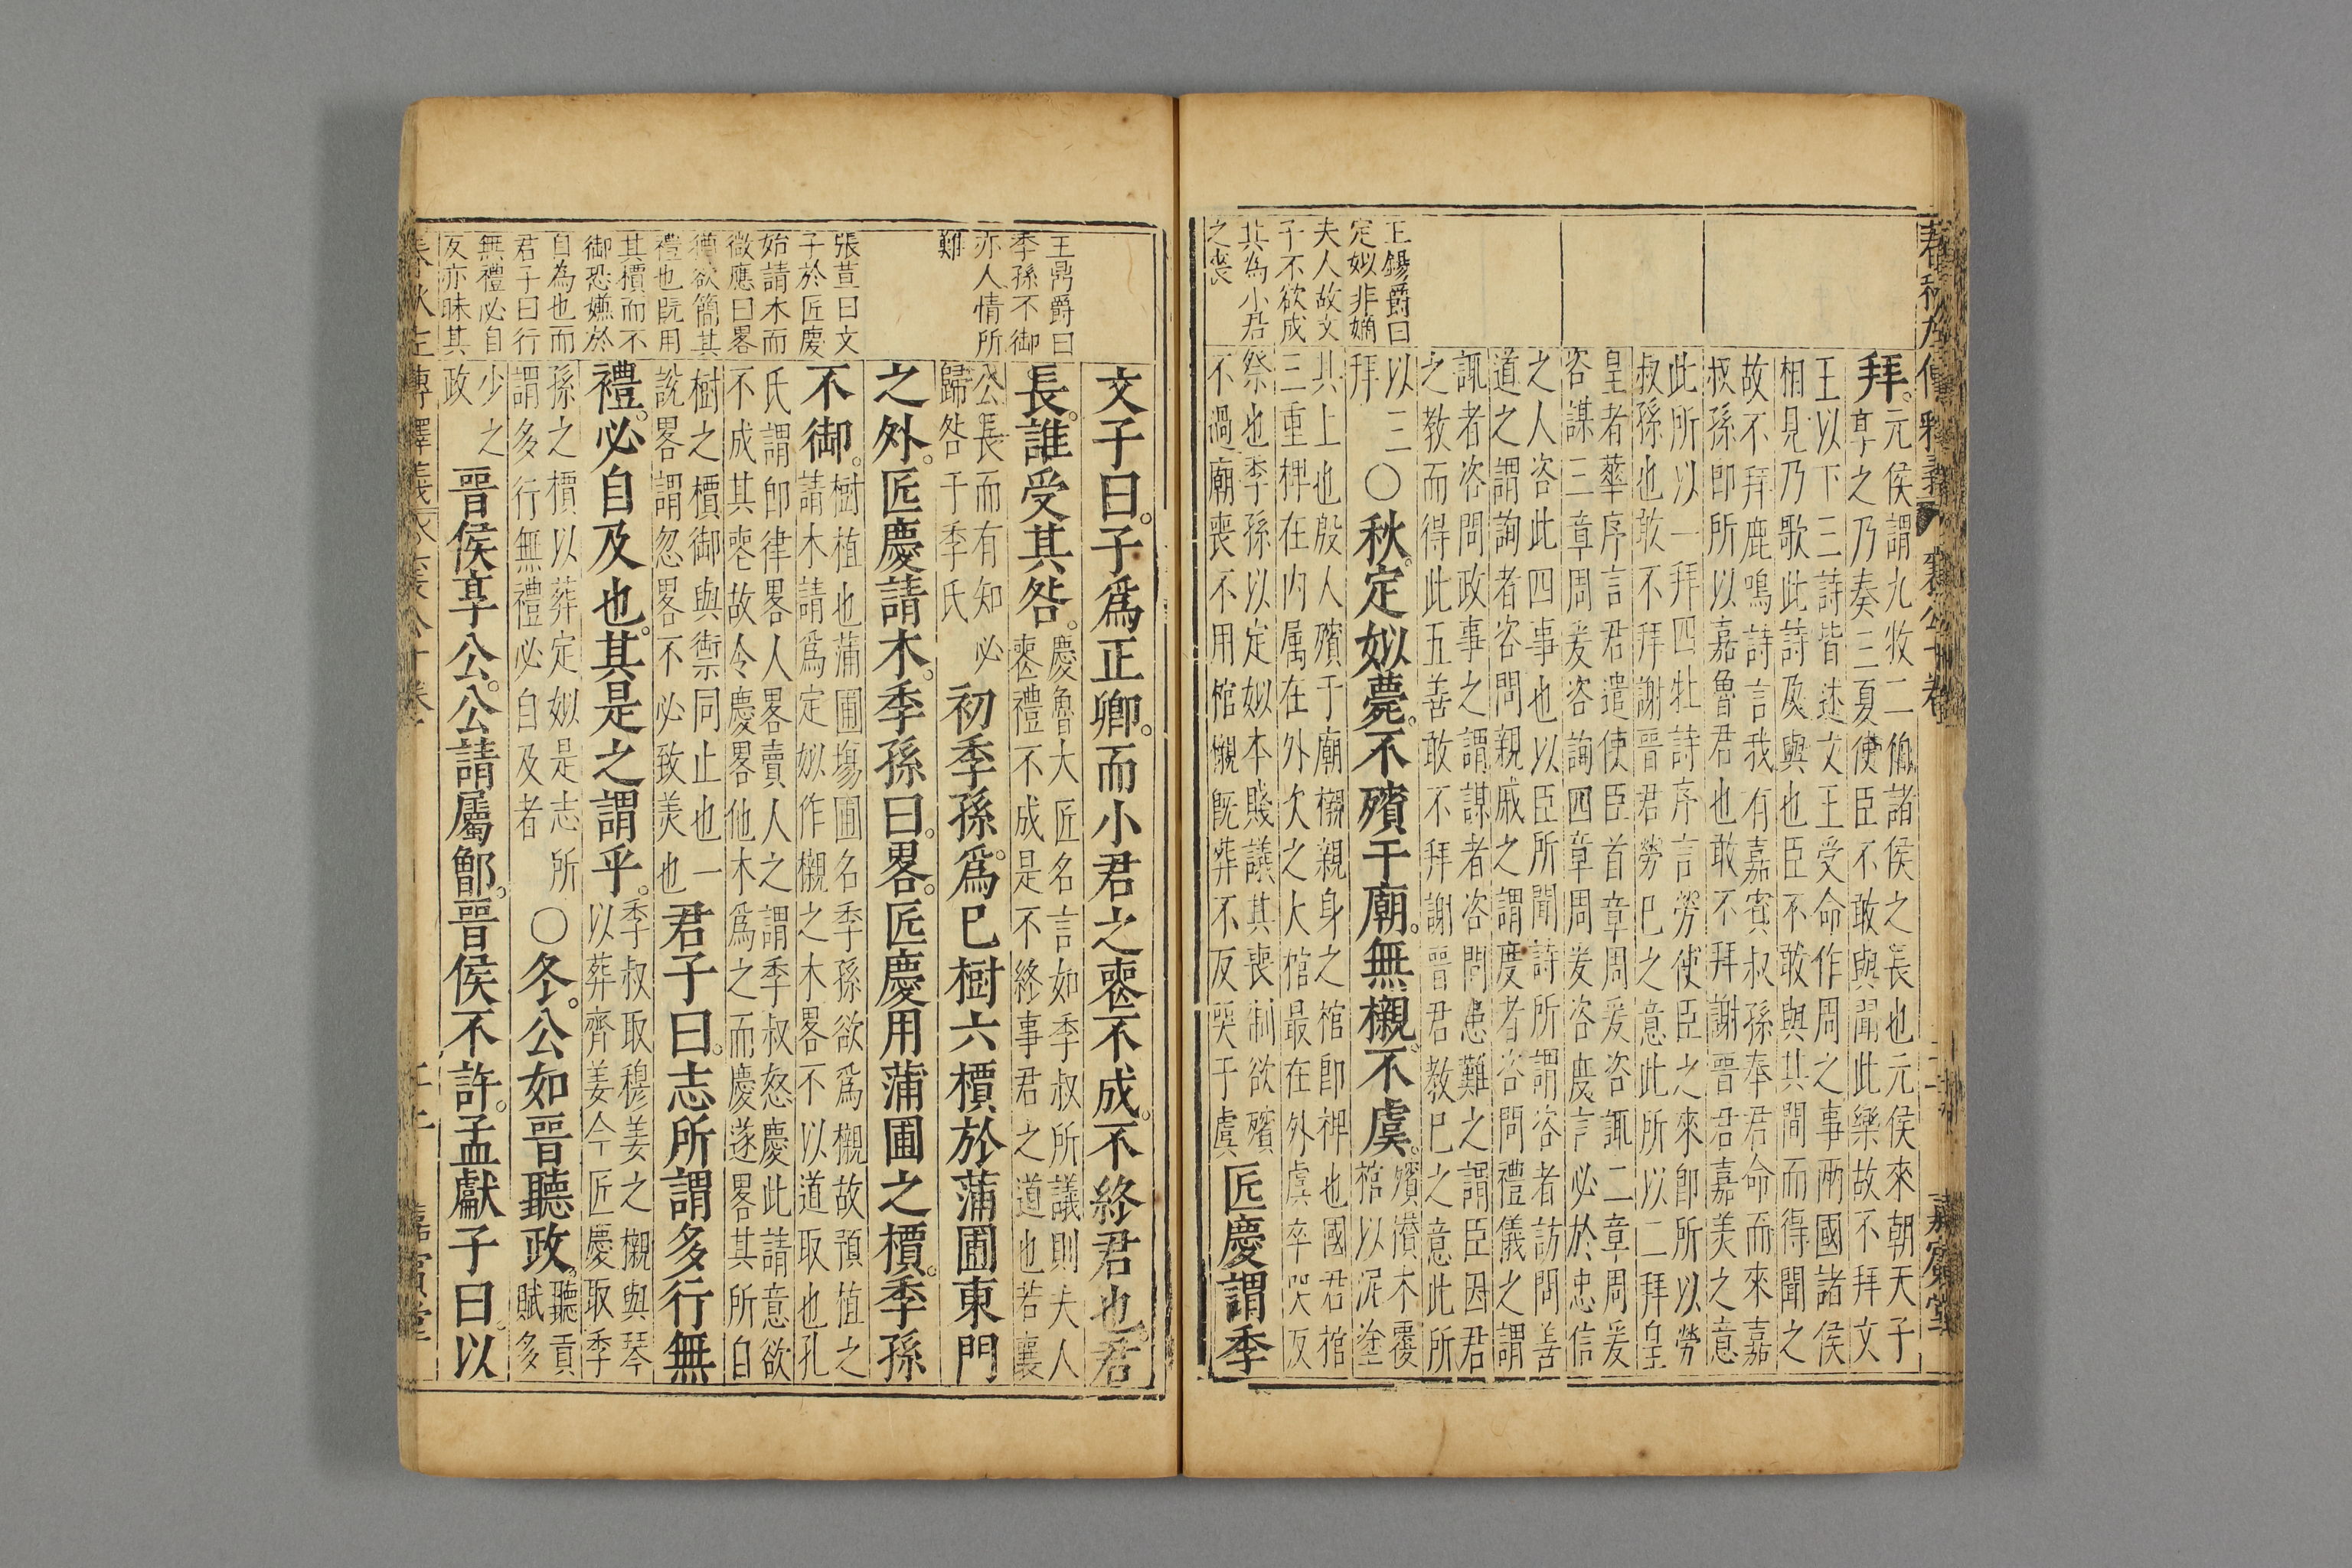 拜。元侯謂九牧二伯諸侯之長也元侯來朝天子
享之乃奏三夏使臣不敢與聞此樂故不拜文
王以下三詩皆述文王受命作周之事兩國諸侯
相見乃歌此詩及與也臣不敢與其間而得聞之
故不拜鹿鳴詩言我有嘉賓叔孫奉君命而來嘉
叔孫即所以嘉魯君也敢不拜謝晉君嘉美之意
此所以一拜四牡詩序言勞使臣之來即所以勞
叔孫也敢不拜謝晉君勞已之意此所以二拜皇
皇者華序言君遣使臣首章周爰咨諏二章周爰
咨謀三章周爰咨詢四章周爰咨度言必於忠信
之人咨此四事也以臣所聞詩所謂咨者訪問善
道之謂詢者咨問親戚之謂度者咨問禮儀之謂
諏者咨問政事之謂謀者咨問患難之謂臣因君
之教而得此五善敢不拜謝晉君教已之意此所
以三
拜
○秋。定姒薨。不殯于廟。無櫬。不虞。殯欑木覆
棺以泥塗
其上也殷人殯于廟櫬親身之棺即椑也國君棺
三重椑在内属在外次之大棺最在外虞卒哭反
祭也季孫以定姒本賤議其喪制欲殯
不過廟喪不用棺櫬既葬不反哭于虞
匠慶謂季
王錫爵曰
定姒非嫡
夫人故文
子不欲成
其為小君
之喪
春秋左傳釋義 襄公十卷 嘉賓堂
文子曰。子爲正卿。而小君之喪不成。不終君也。君
長。誰受其咎。慶魯大匠名言如季叔所議則夫人
喪禮不成是不終事君之道也若襄
公長而有知必
歸咎于季氏
初季孫。爲已樹六檟於蒲圃東門
之外。匠慶請木。季孫曰。畧。匠慶用蒲圃之檟。季孫
不御。樹植也蒲圃塲圃名季孫欲爲櫬故預植之
請木請爲定姒作櫬之木畧不以道取也孔
氏謂即律畧人畧賣人之謂季叔怒慶此請意欲
不成其喪故令慶畧他木爲之而慶遂畧其所自
樹之檟御與禦同止也一
說畧謂忽畧不必致美也
君子曰。志所謂多行無
禮。必自及也。其是之謂乎。季叔取穆姜之櫬與琴
以葬齊姜今匠慶取季
孫之檟以葬定姒是志所
謂多行無禮必自及者
○冬。公如晉聽政。聽貢
賦多
少之
政
晉侯享公。公請屬鄫。晉侯不許。孟獻子曰。以
王鼎爵曰
季孫不御
亦人情所
難
張萱曰文
子於匠慶
始請木而
徵應曰畧
禮也既用
其檟而不
御恐嫌於
自為也而
君子曰行
無禮必自
反亦昧其